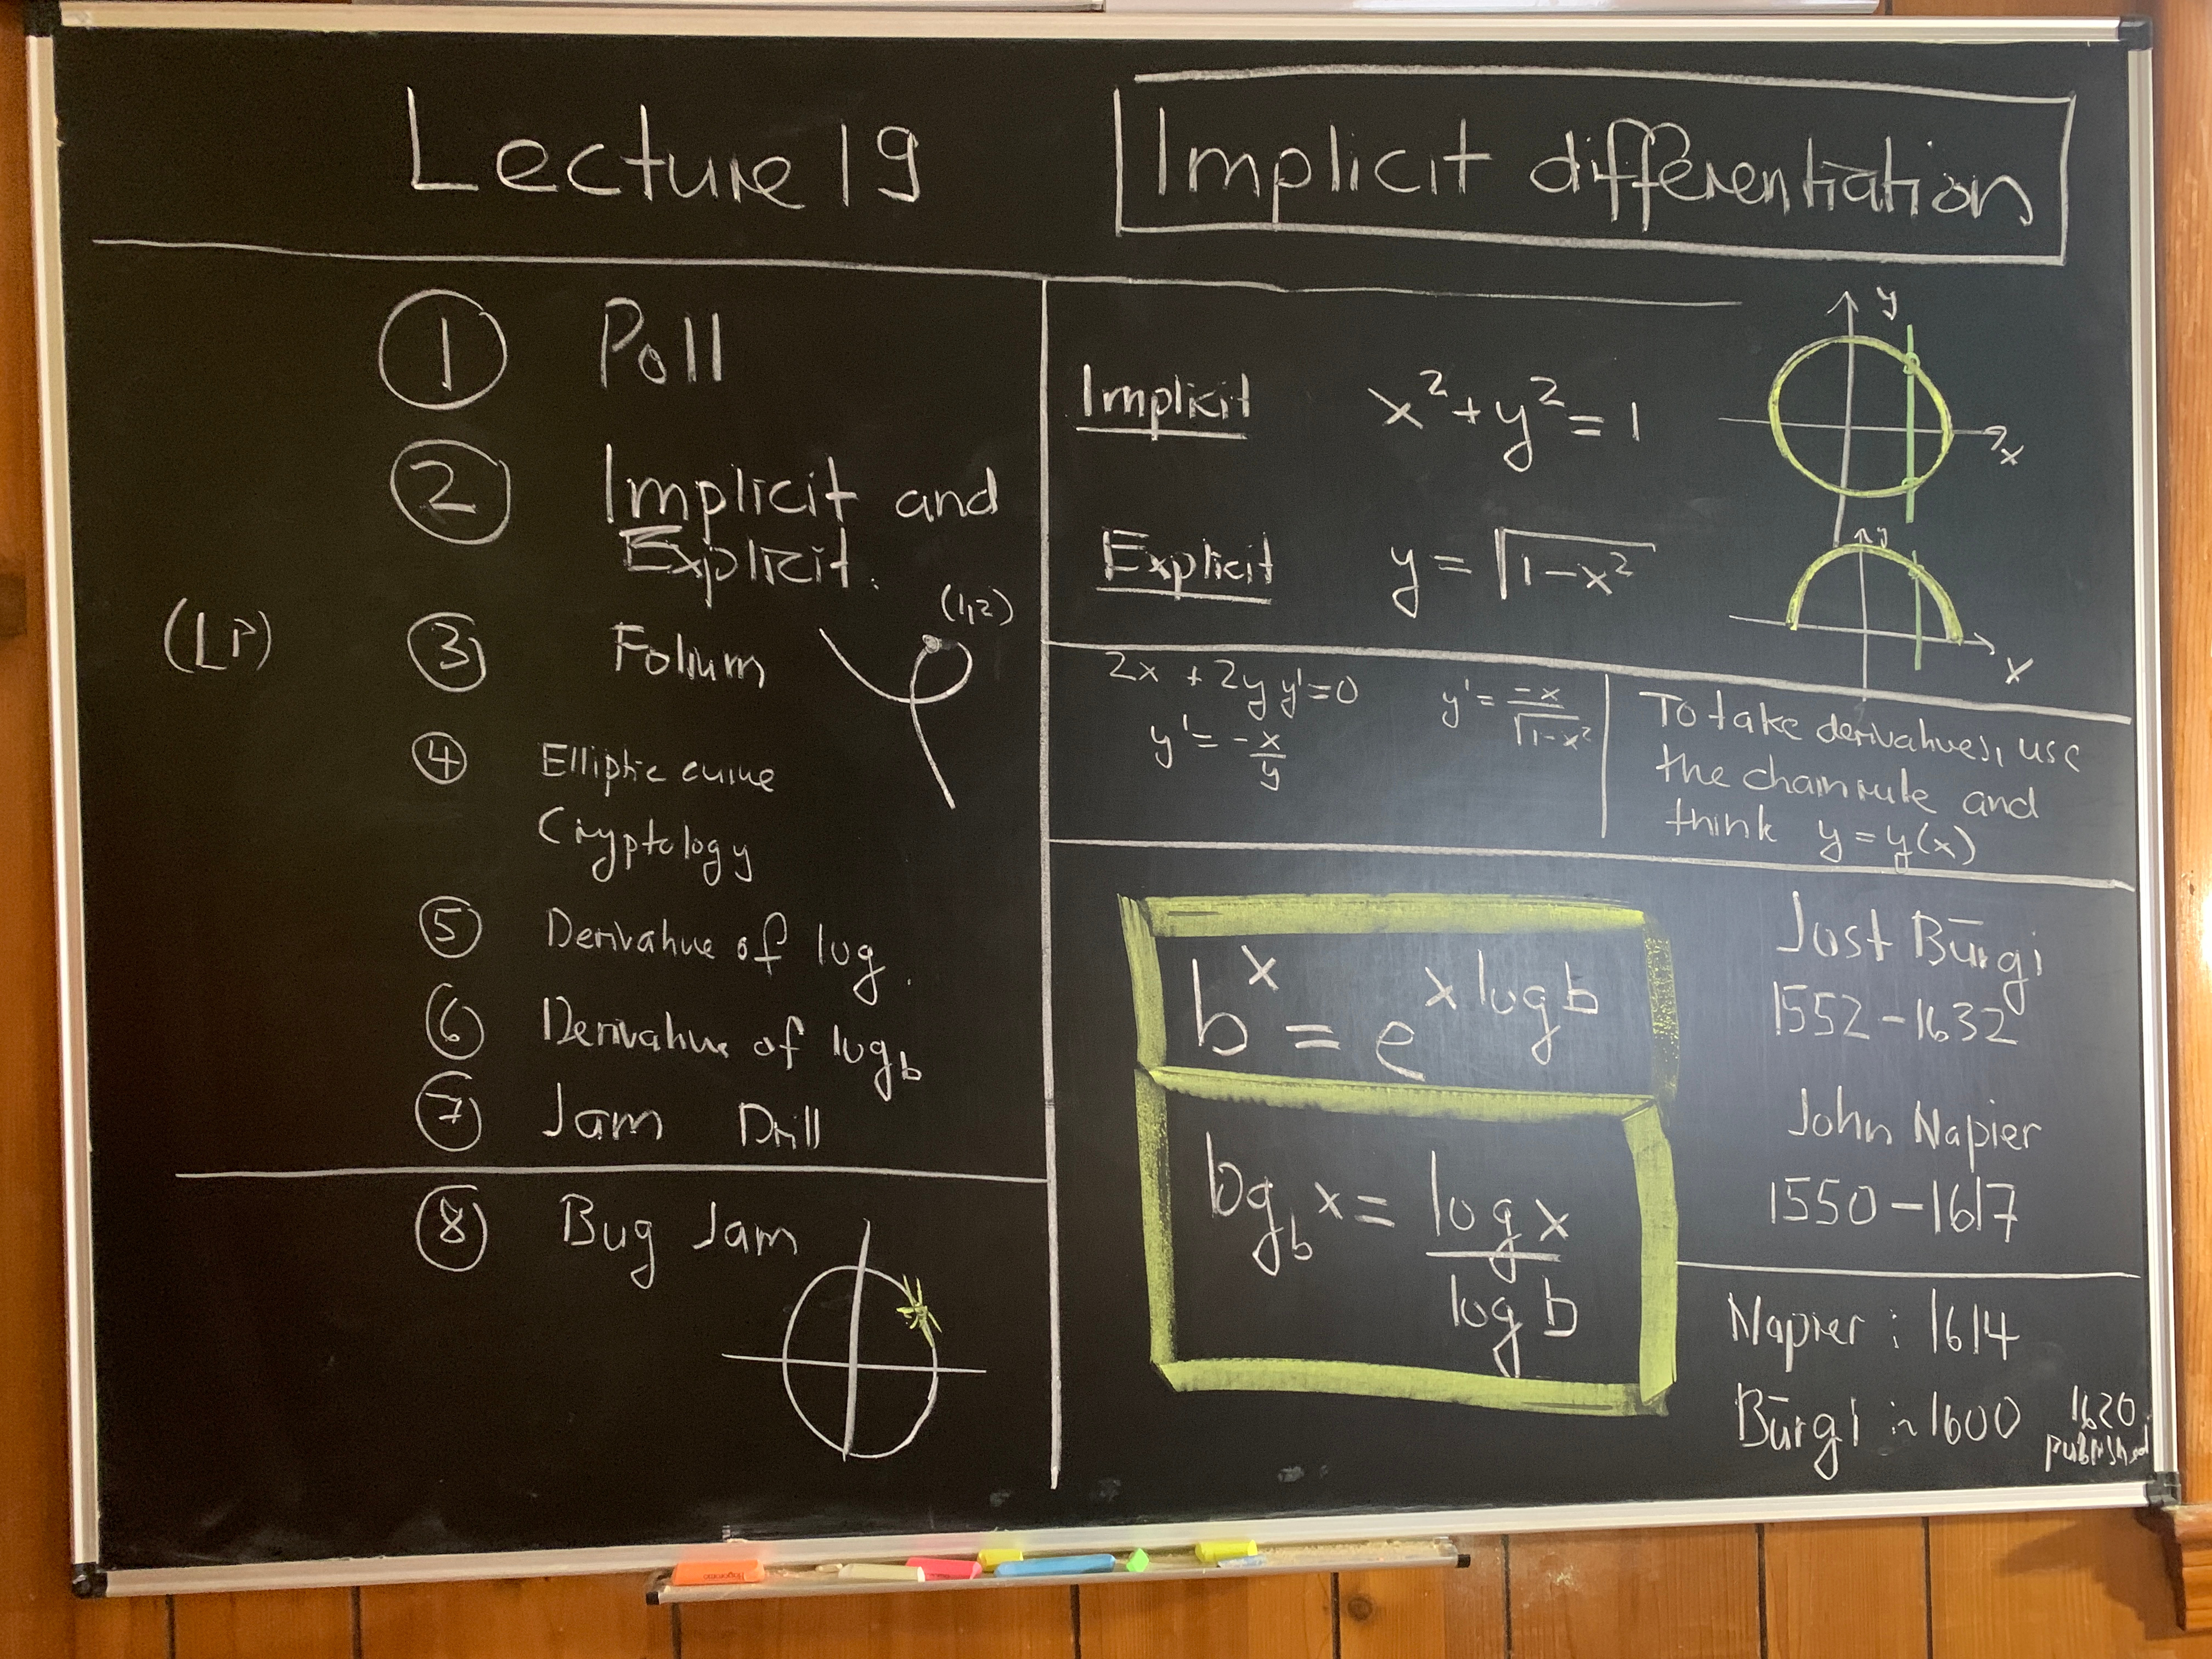 Lecture 19
Implicit differentiation
① Poll
② Implicit and
Explicit.
(LP) ③ Folium (1,2)
④ Elliptic curve
Cryptology
⑤ Derivative of log.
⑥ Derivative of log_b
⑦ Jam Drill
⑧ Bug Jam
Implicit x² + y² = 1
y
x
Explicit y = √(1-x²)
y
x
2x + 2y y' = 0
y' = -x/y
y' = -x/√(1-x²)
To take derivatives, use
the chain rule and
think y = y(x)
b^x = e^(x log b)
log_b x = log x / log b
Jost Bürgi
1552-1632
John Napier
1550-1617
Napier : 1614
Bürgi : 1600
1620
published